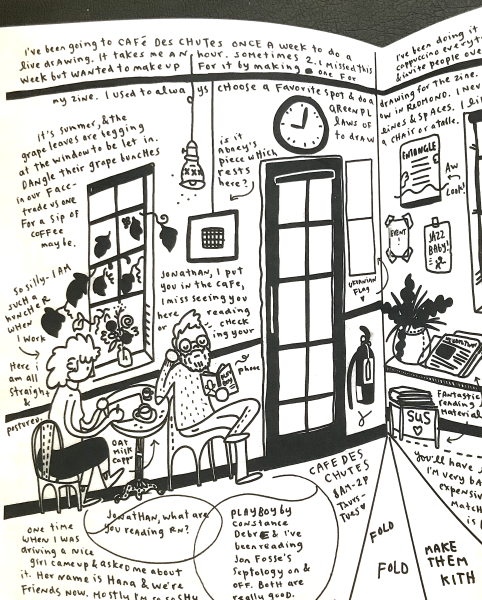 I've been going to CAFÉ DES CHUTES ONCE A week to do a
live drawing. It takes me AN hour, sometimes 2. I missed this
week but WANTED to make up For it by making one For
my zine. I used to always choose a Favorite spot & do a
it's summer, & the
grape leaves are begging
at the window to be let in.
DANGle their grape bunches
in our Face-
trade us one
For a sip of
coffee
may be.
is it
honey's
piece which
rests
here?
So silly- I AM
such a
huncher
when
I work
Here i
am all
straight
postured
JONATHAN, I put
you in the cafe,
i miss seeing you
here reading
check
ing your
phone
PLAY
BOY
OAT
MILK
CAPP
UKRANIAN
FLAG
CAFE DES
CHUTES
8AM-2P
Thurs-
Tues
JonATHAN, what are
you reading RN?
PLAYBOY by
Constance
Debré & I've
been reading
Jon Fosse's
Septology on &
OFF. Both are
really good.
one time
WHEN I WAS
driving a nice
girl came up & asked me about
it. Her name is Hana & we're
Friends now. Mostly I'm so SHY
I've been doing it
cappuccino every
& invite people over
drawing for the zine.
ow in REDMOND. I Nev
lines & SPACES. I li
a CHAIR or a table.
GReen PL
laws OF
to draw
ENTANGLE
AW
Look!
EVENT
!
JAZZ
BABY!
Fantastic
reading
Material
SUS
you'll have
I'm very BA
expensiv
Match
is l
FOLD
FOLD
MAKE
THEM
KITH